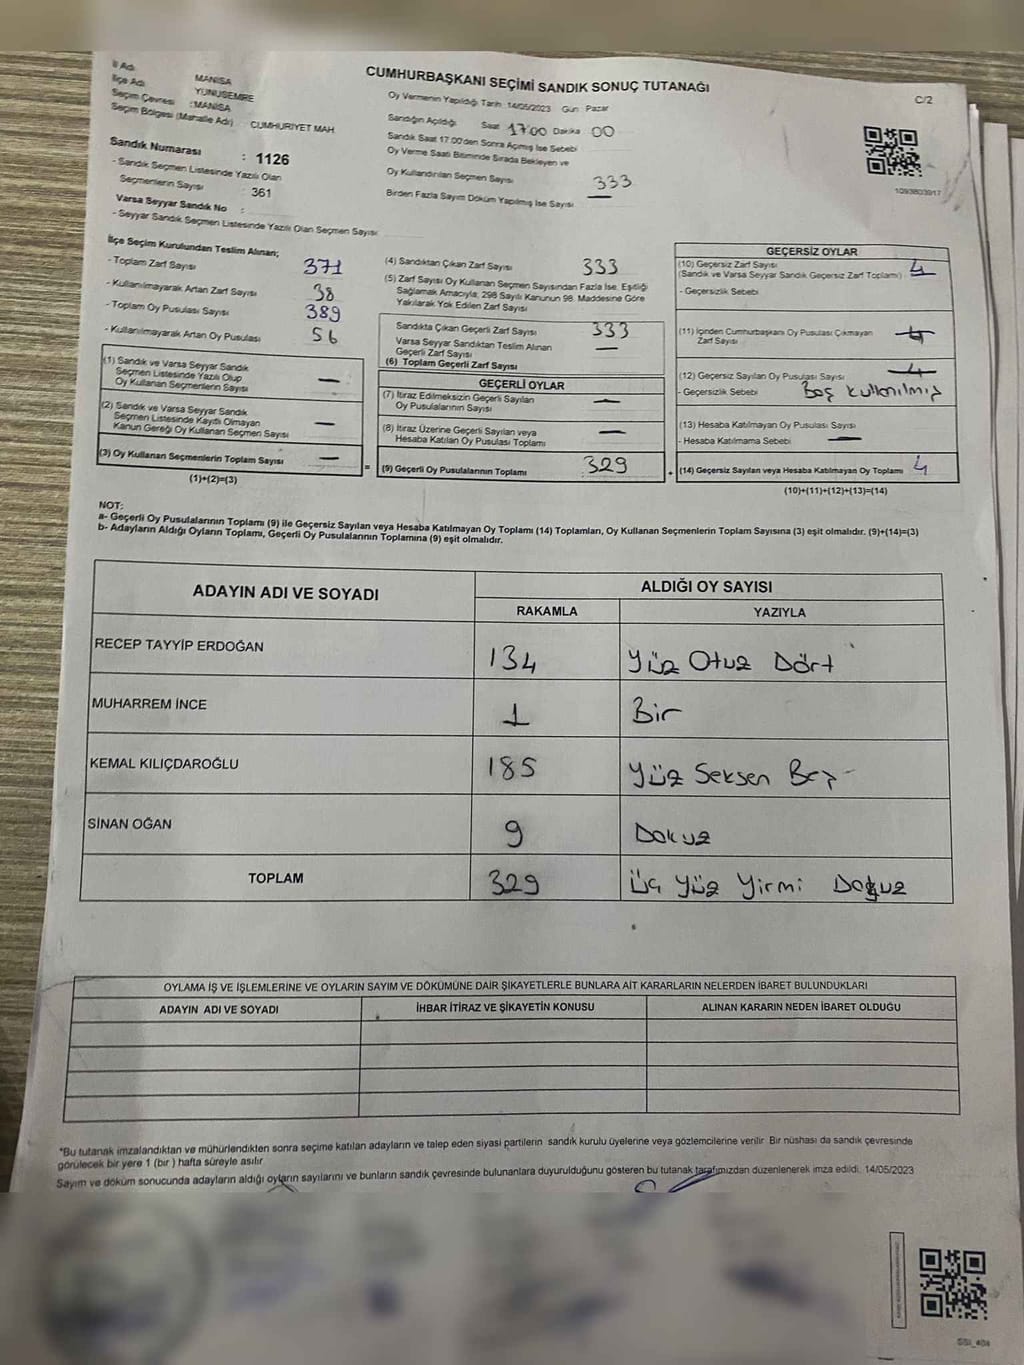 İl Adı MANİSA
İlçe Adı YUNUSEMRE
Seçim Çevresi :MANİSA
Seçim Bölgesi (Mahalle Adı) CUMHURİYET MAH.
Sandık Numarası : 1126
- Sandık Seçmen Listesinde Yazılı Olan
Seçmenlerin Sayısı : 361
Varsa Seyyar Sandık No :
- Seyyar Sandık Seçmen Listesinde Yazılı Olan Seçmen Sayısı
CUMHURBAŞKANI SEÇİMİ SANDIK SONUÇ TUTANAĞI
C/2
Oy Vermenin Yapıldığı Tarih 14/05/2023 Gün Pazar
Sandığın Açıldığı Saat 17:00 Dakika 00
Sandık Saat 17.00'den Sonra Açılmış İse Sebebi
Oy Verme Saati Bitiminde Sırada Bekleyen ve
Oy Kullandırılan Seçmen Sayısı 333
Birden Fazla Sayım Döküm Yapılmış İse Sayısı —
1093803917
İlçe Seçim Kurulundan Teslim Alınan;
- Toplam Zarf Sayısı 371
- Kullanılmayarak Artan Zarf Sayısı 38
- Toplam Oy Pusulası Sayısı 389
- Kullanılmayarak Artan Oy Pusulası 56
(1) Sandık ve Varsa Seyyar Sandık
Seçmen Listesinde Yazılı Olup
Oy Kullanan Seçmenlerin Sayısı —
(2) Sandık ve Varsa Seyyar Sandık
Seçmen Listesinde Kayıtlı Olmayan
Kanun Gereği Oy Kullanan Seçmen Sayısı —
(3) Oy Kullanan Seçmenlerin Toplam Sayısı —
(1)+(2)=(3)
(4) Sandıktan Çıkan Zarf Sayısı 333
(5) Zarf Sayısı Oy Kullanan Seçmen Sayısından Fazla İse, Eşitliği
Sağlamak Amacıyla, 298 Sayılı Kanunun 98. Maddesine Göre
Yakılarak Yok Edilen Zarf Sayısı
Sandıkta Çıkan Geçerli Zarf Sayısı 333
Varsa Seyyar Sandıktan Teslim Alınan
Geçerli Zarf Sayısı —
(6) Toplam Geçerli Zarf Sayısı
GEÇERLİ OYLAR
(7) İtiraz Edilmeksizin Geçerli Sayılan
Oy Pusulalarının Sayısı —
(8) İtiraz Üzerine Geçerli Sayılan veya
Hesaba Katılan Oy Pusulası Toplamı —
= (9) Geçerli Oy Pusulalarının Toplamı 329 +
GEÇERSİZ OYLAR
(10) Geçersiz Zarf Sayısı
(Sandık ve Varsa Seyyar Sandık Geçersiz Zarf Toplamı) 4
- Geçersizlik Sebebi
(11) İçinden Cumhurbaşkanı Oy Pusulası Çıkmayan
Zarf Sayısı
(12) Geçersiz Sayılan Oy Pusulası Sayısı 4
- Geçersizlik Sebebi Boş kullanılmış
(13) Hesaba Katılmayan Oy Pusulası Sayısı
- Hesaba Katılmama Sebebi —
(14) Geçersiz Sayılan veya Hesaba Katılmayan Oy Toplamı 4
(10)+(11)+(12)+(13)=(14)
NOT:
a- Geçerli Oy Pusulalarının Toplamı (9) ile Geçersiz Sayılan veya Hesaba Katılmayan Oy Toplamı (14) Toplamları, Oy Kullanan Seçmenlerin Toplam Sayısına (3) eşit olmalıdır. (9)+(14)=(3)
b- Adayların Aldığı Oyların Toplamı, Geçerli Oy Pusulalarının Toplamına (9) eşit olmalıdır.
ADAYIN ADI VE SOYADI ALDIĞI OY SAYISI
RAKAMLA YAZIYLA
RECEP TAYYİP ERDOĞAN 134 Yüz Otuz Dört
MUHARREM İNCE 1 Bir
KEMAL KILIÇDAROĞLU 185 Yüz Seksen Beş
SİNAN OĞAN 9 Dokuz
TOPLAM 329 Üç Yüz Yirmi Dokuz
OYLAMA İŞ VE İŞLEMLERİNE VE OYLARIN SAYIM VE DÖKÜMÜNE DAİR ŞİKAYETLERLE BUNLARA AİT KARARLARIN NELERDEN İBARET BULUNDUKLARI
ADAYIN ADI VE SOYADI İHBAR İTİRAZ VE ŞİKAYETİN KONUSU ALINAN KARARIN NEDEN İBARET OLDUĞU
*Bu tutanak imzalandıktan ve mühürlendikten sonra seçime katılan adayların ve talep eden siyasi partilerin sandık kurulu üyelerine veya gözlemcilerine verilir. Bir nüshası da sandık çevresinde
görülecek bir yere 1 (bir) hafta süreyle asılır
Sayım ve döküm sonucunda adayların aldığı oyların sayılarını ve bunların sandık çevresinde bulunanlara duyurulduğunu gösteren bu tutanak tarafımızdan düzenlenerek imza edildi. 14/05/2023